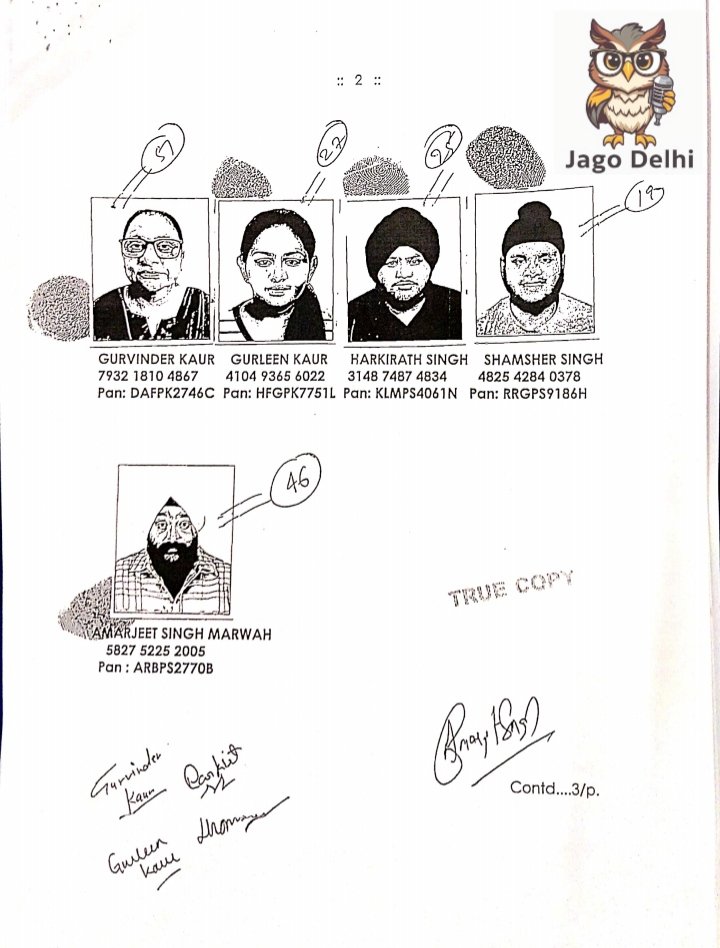 :: 2 ::
Jago Delhi
19
GURVINDER KAUR GURLEEN KAUR HARKIRATH SINGH SHAMSHER SINGH
7932 1810 4867 4104 9365 6022 3148 7487 4834 4825 4284 0378
Pan: DAFPK2746C Pan: HFGPK7751L Pan: KLMPS4061N Pan: RRGPS9186H
46
AMARJEET SINGH MARWAH
5827 5225 2005
Pan : ARBPS2770B
TRUE COPY
Contd....3/p.
Gurvinder
Kaur
Gurleen
Kaur